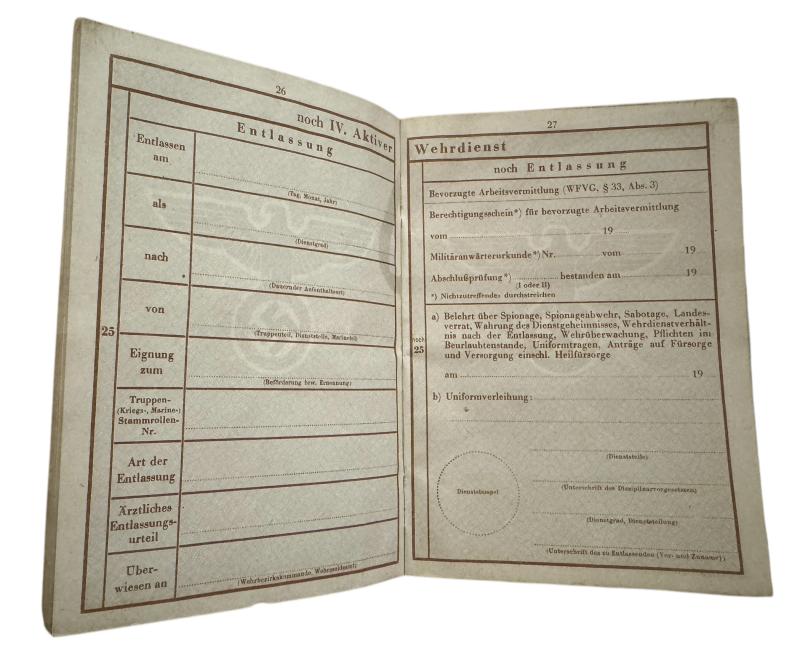 26
noch IV. Aktiver
Entlassung
Entlassen
am
(Tag, Monat, Jahr)
als
(Dienstgrad)
nach
(Dauernder Aufenthaltsort)
von
(Truppenteil, Dienststelle, Marineteil)
25
Eignung
zum
(Beförderung bzw. Ernennung)
Truppen-
(Kriegs-, Marine-)
Stammrollen-
Nr.
Art der
Entlassung
Ärztliches
Entlassungs-
urteil
Über-
wiesen an
(Wehrbezirkskommando, Wehrmeldeamt)
27
Wehrdienst
noch Entlassung
Bevorzugte Arbeitsvermittlung (WFVG, § 33, Abs. 3)
Berechtigungsschein*) für bevorzugte Arbeitsvermittlung
vom 19
Militäranwärterurkunde*) Nr. vom 19
Abschlußprüfung*) bestanden am 19
(I oder II)
*) Nichtzutreffendes durchstreichen
noch
25
a) Belehrt über Spionage, Spionageabwehr, Sabotage, Landes-
verrat, Wahrung des Dienstgeheimnisses, Wehrdienstverhält-
nis nach der Entlassung, Wehrüberwachung, Pflichten im
Beurlaubtenstande, Uniformtragen, Anträge auf Fürsorge
und Versorgung einschl. Heilfürsorge
am 19
b) Uniformverleihung:
(Dienststelle)
Dienststempel
(Unterschrift des Disziplinarvorgesetzten)
(Dienstgrad, Dienststellung)
(Unterschrift des zu Entlassenden (Vor- und Zuname))